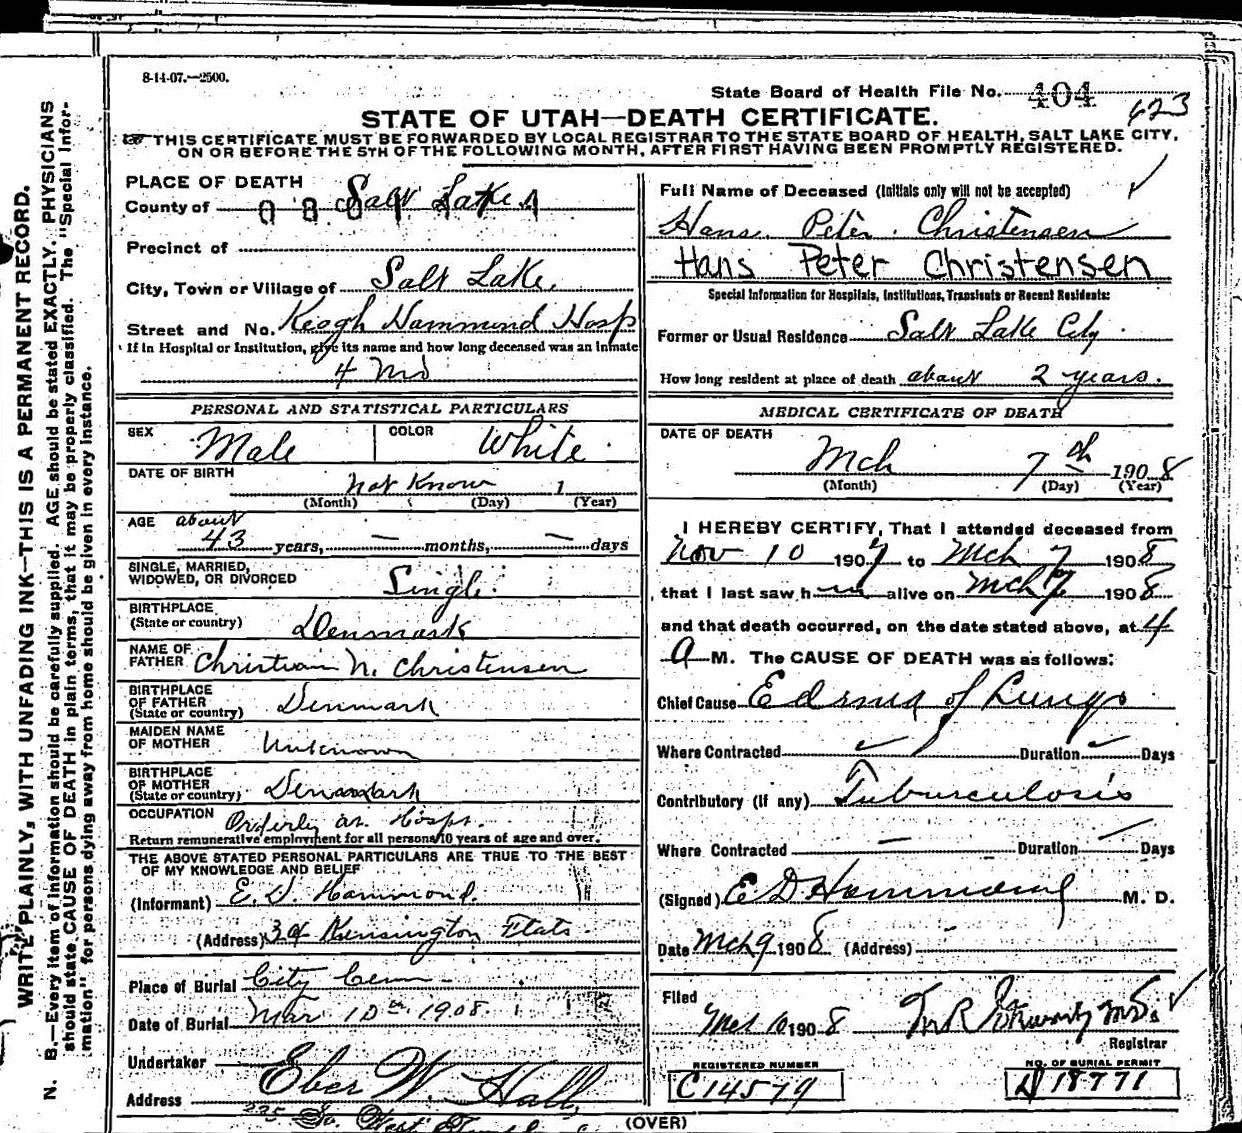 8-14-07.—2500.
State Board of Health File No. 404
623
STATE OF UTAH—DEATH CERTIFICATE.
☞ THIS CERTIFICATE MUST BE FORWARDED BY LOCAL REGISTRAR TO THE STATE BOARD OF HEALTH, SALT LAKE CITY,
ON OR BEFORE THE 5TH OF THE FOLLOWING MONTH, AFTER FIRST HAVING BEEN PROMPTLY REGISTERED.
WRITE PLAINLY, WITH UNFADING INK—THIS IS A PERMANENT RECORD.
N. B.—Every item of information should be carefully supplied. AGE should be stated EXACTLY. PHYSICIANS
should state CAUSE OF DEATH in plain terms, that it may be properly classified. The "Special Infor-
mation" for persons dying away from home should be given in every instance.
PLACE OF DEATH
County of Salt Lake
Precinct of
City, Town or Village of Salt Lake
Street and No. Keogh Hammond Hosp
If in Hospital or Institution, give its name and how long deceased was an inmate
4 mo
PERSONAL AND STATISTICAL PARTICULARS
SEX Male COLOR White
DATE OF BIRTH not Know 1
(Month) (Day) (Year)
AGE about
43 years, — months, — days
SINGLE, MARRIED,
WIDOWED, OR DIVORCED Single
BIRTHPLACE
(State or country) Denmark
NAME OF
FATHER Christian N. Christensen
BIRTHPLACE
OF FATHER
(State or country) Denmark
MAIDEN NAME
OF MOTHER Unknown
BIRTHPLACE
OF MOTHER
(State or country) Denmark
OCCUPATION Orderly at Hosp.
Return remunerative employment for all persons 10 years of age and over.
THE ABOVE STATED PERSONAL PARTICULARS ARE TRUE TO THE BEST
OF MY KNOWLEDGE AND BELIEF
(Informant) E. D. Hammond.
(Address) Kensington Flats
Place of Burial City Cem
Date of Burial Mar 10th 1908.
Undertaker Eber W. Hall
Address 235 So. West Temple
Full Name of Deceased (Initials only will not be accepted)
Hans Peter Christensen
Hans Peter Christensen
Special Information for Hospitals, Institutions, Transients or Recent Residents:
Former or Usual Residence Salt Lake City
How long resident at place of death about 2 years.
MEDICAL CERTIFICATE OF DEATH
DATE OF DEATH
Mch 7th 1908
(Month) (Day) (Year)
I HEREBY CERTIFY, That I attended deceased from
Nov 10 1907 to Mch 7 1908
that I last saw him alive on Mch 7 1908
and that death occurred, on the date stated above, at 4
A M. The CAUSE OF DEATH was as follows:
Chief Cause Edema of Lungs
Where Contracted Duration Days
Contributory (if any) Tuburculosis
Where Contracted — Duration Days
(Signed) E D Hammond M. D.
Date Mch 9 1908 (Address)
Filed
Mch 10 1908
Registrar
REGISTERED NUMBER
C14579
NO. OF BURIAL PERMIT
18771
(OVER)